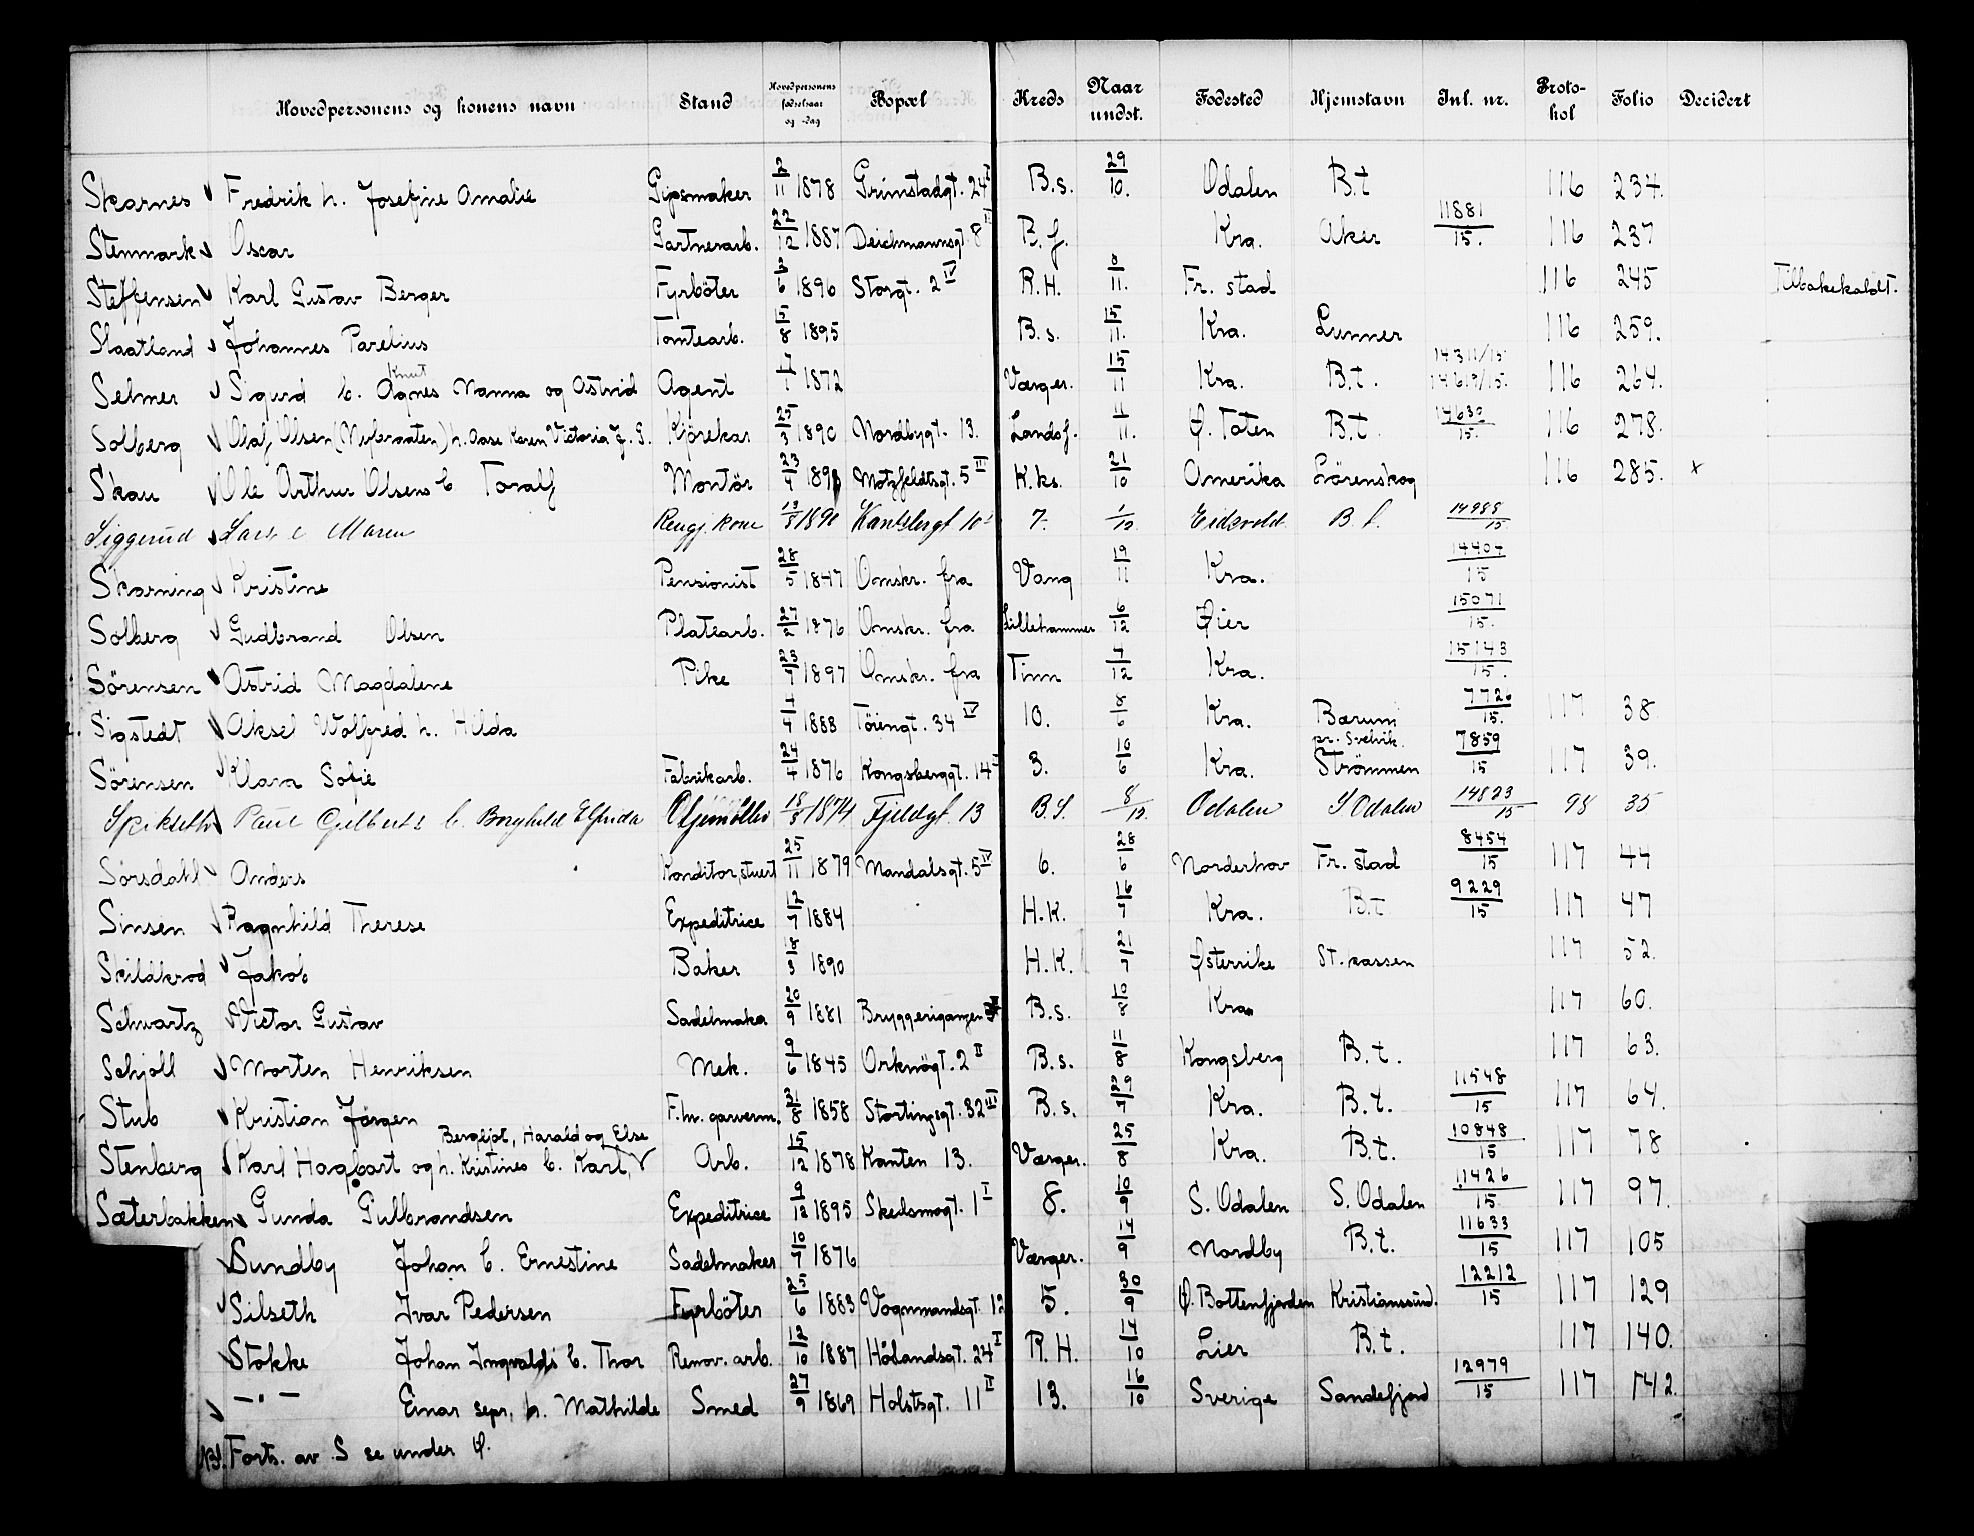 Hovedpersonens og konens navn Stand Hovedpersonens fødselsaar og -dag Bopæl Kreds Naar undst. Fødested Hjemstavn Inl. nr. Protokol Folio Decidert
Skarnes Fredrik h. Josefine Amalie Gipsmaker 2/11 1878 Grimstadgt. 24 I B.s. 29/10. Odalen B.t 116 234.
Stenmark Oscar Gartnerarb. 22/12 1887 Deichmannsgt. 8 B.f. Kra. Aker 11881/15. 116 237
Steffensen Karl Gustav Berger Fyrböter 3/6 1896 Storgt. 2 IV R.H. 8/11. Fr. stad 116 245 Tilbakekaldt.
Slaatland Johannes Parelius Tomtearb. 15/8 1895 B.s. 15/11. Kra. Lunner 116 259.
Selmer Sigurd b. Knut Agnes Nanna og Astrid Agent 1872 Værger. 15/11 Kra. B.t. 14311/15 116 264.
Solberg Olaf Olsen (Nybraaten) h. Aase Karen Victoria f. S. Kjörekar 25/3 1890 Nordbygt. 13. Landsf. 4/11. Ø. Toten B.t. 14630/15. 116 278.
Skau Ole Arthur Olsens b Toralf Montör 23/4 Motzfeldtsgt. 5 III K.ks. 21/10 Amerika Lörenskog 116 285. x
Siggerud Lars c Maren Rengj. kone 189 Kantsbergt 10 7. 1/12. Eidsvold B.f. 14988/15
Skarning Kristine Pensionist 28/5 1847 Omskr. fra Vang 19/11 Kra. 14404/15
Solberg Gudbrand Olsen Platearb. 27/2 1876 Omskr. fra Lillehammer 6/12 Øier 15071/15.
Sörensen Astrid Magdalene Pike 23/7 1897 Omskr. fra Tinn 7/12 Kra. 15143/15.
Sigstedt Aksel Wolfred h. Hilda 7/4 1888 Töiengt. 34 IV 10. 8/6 Kra. Bærum 7726/15. 117 38
Sörensen Klara Sofie Fabrikarb. 24/4 1876 Kongsberggt. 14 I 3. 10/6 Kra. pr. Svelvik. Strömmen 7859/15 117 39.
Paul Gilberts b. Borghild Elfrida 18/8 1874 Fjeldgt. 13 B.S. 8/12. Odalen S Odalen 14823/15 98 35
Sörsdahl Anders Konditor, stuert 25/11 1879 Mandalsgt. 5 IV 6. 28/6 Norderhov Fr. stad 8454/15 117 44
Sinsen Ragnhild Therese Expeditrice 12/7 1884 H.K. 16/7 Kra. B.t 9229/15 117 47
Skildkrod Jakob Baker 18/3 1890 H.K. 21/7 Østerrike St. kassen 117 52.
Schvartz Victor Gustav Sadelmaker 20/9 1881 Bryggerigangen B.s. 10/8 Kra. 117 60.
Schjöll Morten Henriksen Mek. 9/6 1845 Orknögt. 2 II B.s. 11/8 Kongsberg B.t. 117 63.
Stub Kristian Jörgen F.hv. garverm. 31/8 1858 Stortingsgt. 32 III B.s. 29/7 Kra. B.t. 11548/15 117 64.
Stenberg Karl Hagbart og h. Kristines b. Karl, Bergljot, Harald og Else Arb. 15/12 1878 Kanten 13. Værger. 25/8 Kra. B.t. 10848/15 117 78
Sæterbakken Gunda Gulbrandsen Expeditrice 9/12 1895 Skedsmogt. 1 I 8. 10/9 S. Odalen S. Odalen 11426/15. 117 97.
Sundby Johan b. Ernestine Sadelmaker 10/7 1876 Værger. 14/9 Nordby B.t. 11633/15 117 105
Silseth Ivar Pedersen Fyrböter 25/6 1883 Vognmandsgt. 12 5. 30/9 Ø. Bottenfjorden Kristianssund. 12212/15 117 129
Stokke Johan Ingvalds b. Thor Renov. arb. 12/10 1887 Hölandsgt. 24 I R.H. 14/10 Lier B.t. 117 140.
— " — Einar sepr. h. Mathilde Smed 27/9 1869 Holstsgt. 11 II 13. 16/10 Sverige Sandefjord 12979/15 117 142.
NB. Forts. av S se under Ø.